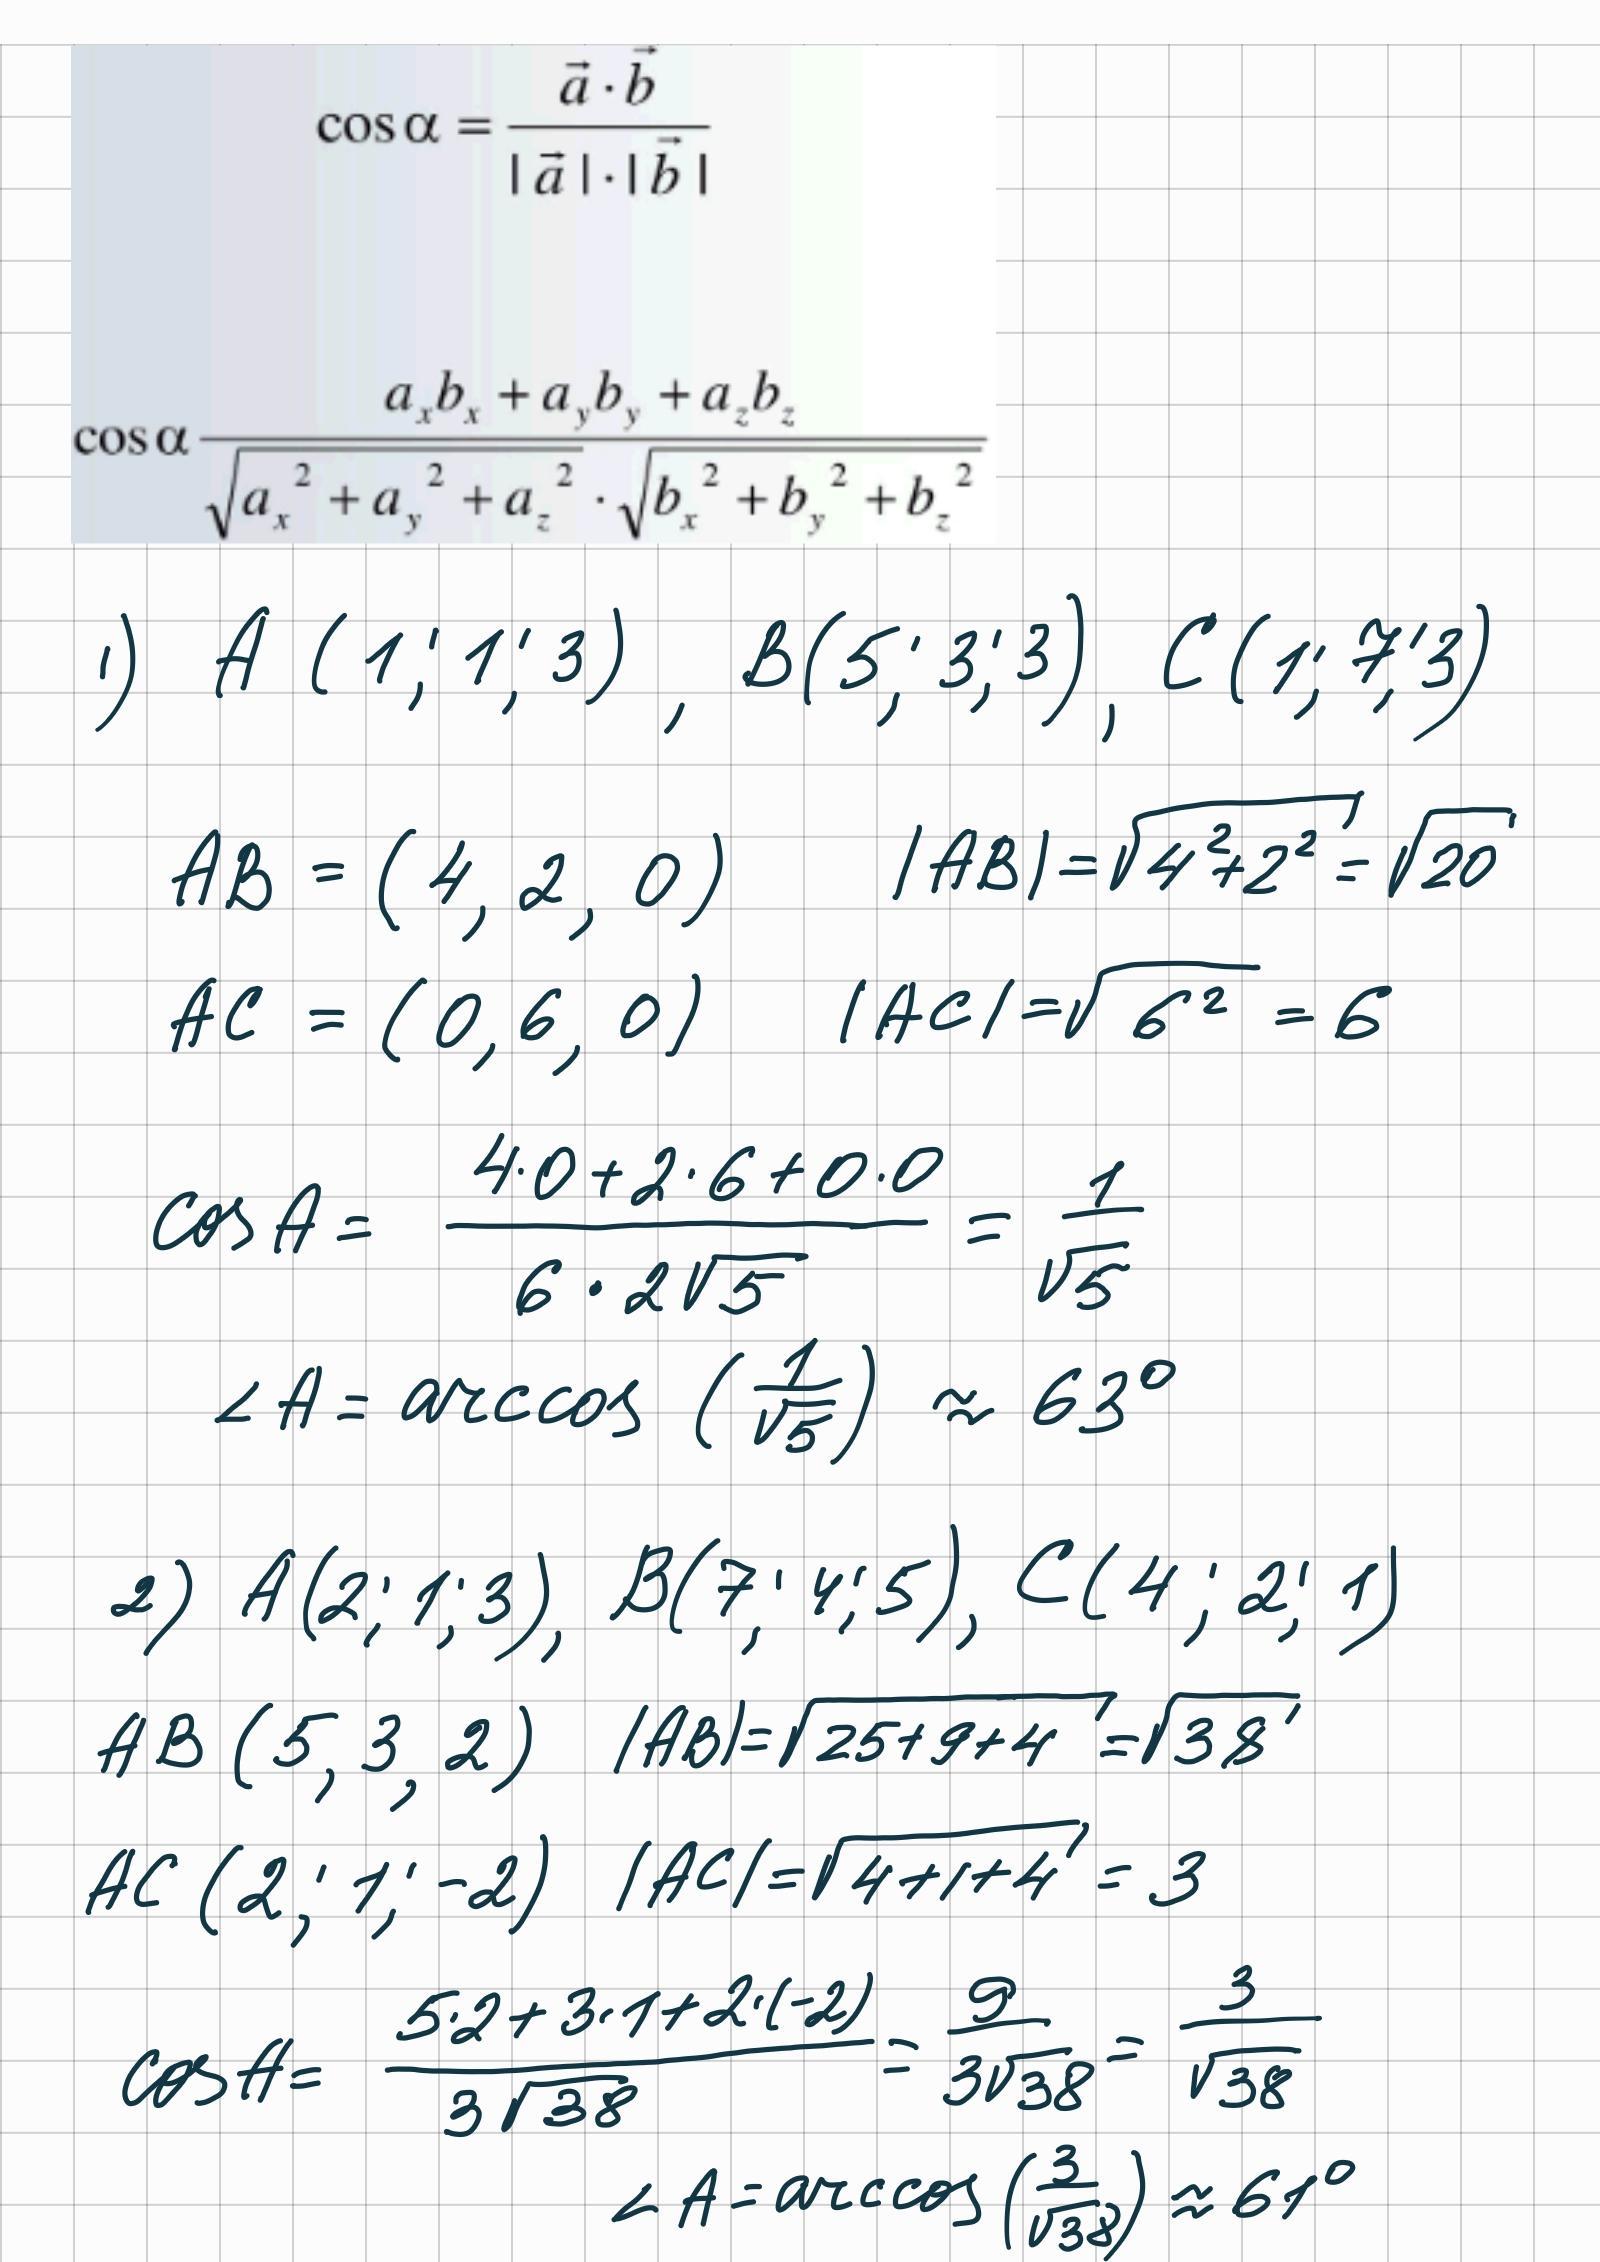 cos α = (a⃗ · b⃗) / (| a⃗ | · | b⃗ |)
cos α (aₓbₓ + a_y b_y + a_z b_z) / (√(aₓ² + a_y² + a_z²) · √(bₓ² + b_y² + b_z²))
1) A (1; 1; 3), B(5; 3; 3), C(1; 7; 3)
AB = (4, 2, 0) |AB| = √(4² + 2²) = √20
AC = (0, 6, 0) |AC| = √(6²) = 6
cos A = (4·0 + 2·6 + 0·0) / (6 · 2√5) = 1/√5
∠A = arccos (1/√5) ≈ 63°
2) A(2; 1; 3), B(7; 4; 5), C(4; 2; 1)
AB (5, 3, 2) |AB| = √(25+9+4) = √38
AC (2; 1; -2) |AC| = √(4+1+4) = 3
cos A = (5·2 + 3·1 + 2·(-2)) / (3√38) = 9/(3√38) = 3/√38
∠A = arccos (3/√38) ≈ 61°